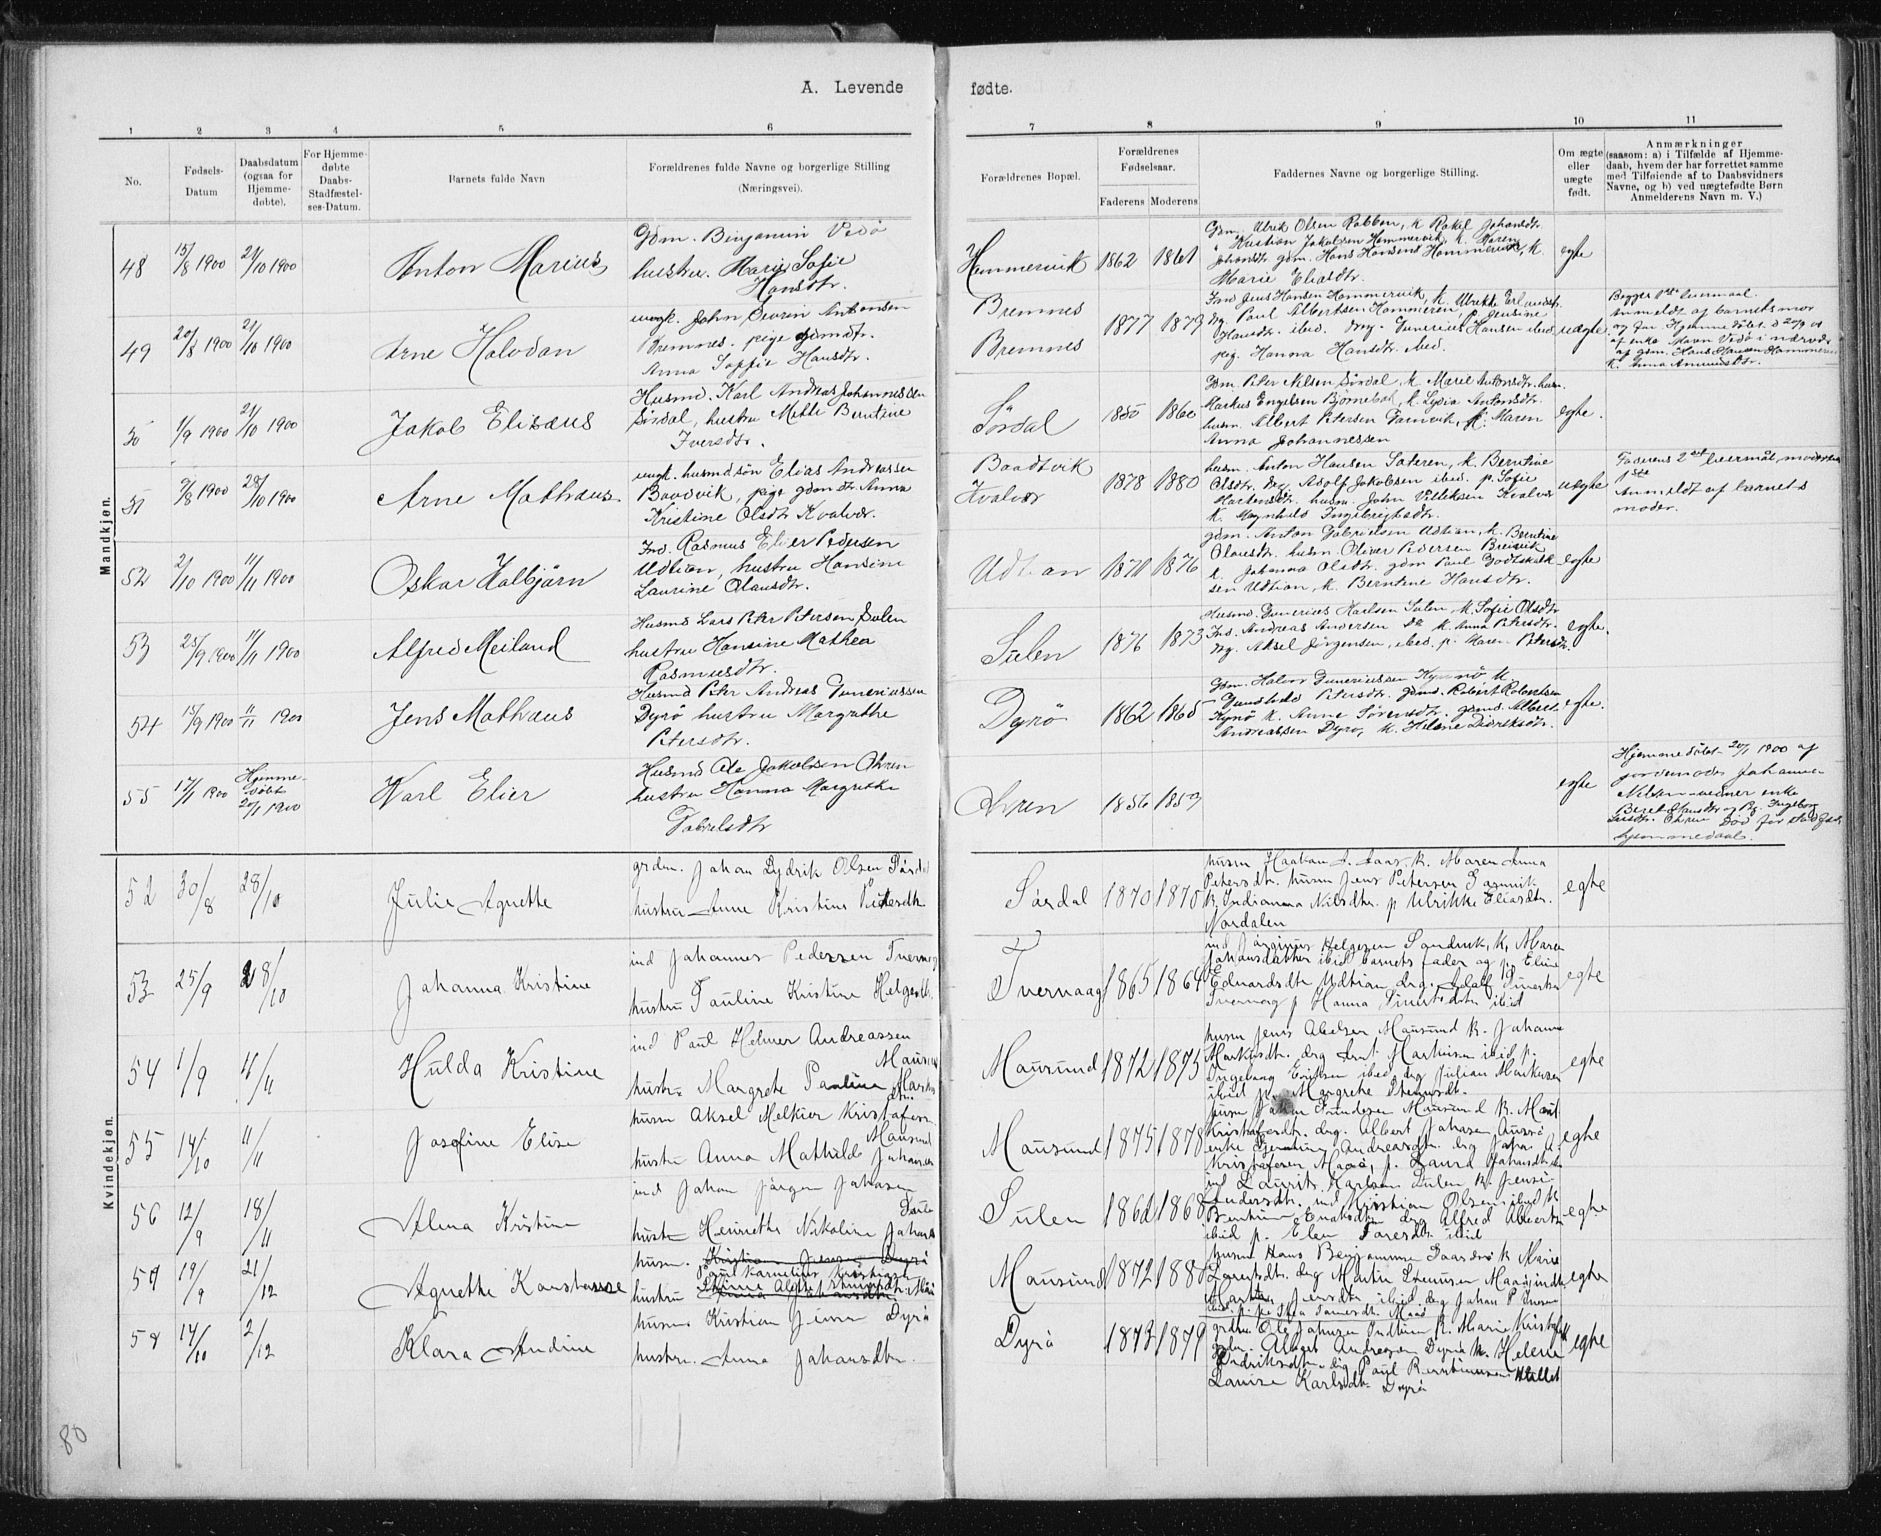 A. Levende fødte.
1 2 3 4 5 6 7 8 9 10 11
No.
Fødsels-
Datum
Daabsdatum
(ogsaa for
Hjemme-
døbte).
For Hjemme-
døbte
Daabs-
Stadfæstel-
ses-Datum.
Barnets fulde Navn
Forældrenes fulde Navne og borgerlige Stilling
(Næringsvei).
Forældrenes Bopæl.
Forældrenes
Fødselsaar.
Faderens Moderens
Faddernes Navne og borgerlige Stilling.
Om ægte
eller
uægte
født.
Anmærkninger
(saasom: a) i Tilfælde af Hjemme-
daab, hvem der har forrettet samme
med Tilføiende af to Daabsvidners
Navne, og b) ved uægtefødte Børn
Anmelderens Navn m. V.)
Mandkjøn.
48 15/8 1900 21/10 1900 Anton Marius
Gdm. Benjamin Vedø
hustru. Marie Sofie
Hansdtr.
Hammervik 1862 1861
Gdm. Ulrik Olsen Rabben, k. Rakel Johansdtr.
Kristian Jakobsen Hammervik, k. Maren
Johansdtr. gdm. Hans Hansens Hammervik, k.
Marie Eliasdtr.
egte
49 20/8 1900 21/10 1900 Arne Halvdan
ungk. John Sevrin Antonsen
Bremnes. pige gdmdtr.
Anna Sofie Hansdtr.
Bremnes
Bremnes
1877 1879
Ind Jens Hansen Hammervik, k. Ulrikke Erlandsdtr.
Ug. Paul Albertsen Hammeren, p. Jensine
Hansdtr. ibid. Ung. Gunerius Hansen ibid
pig. Hanna Hansdtr. ibid.
uægte
Begges 1ste leiermaal.
Anmeldt af barnets mor
og far. Hjemmedøbt d. 20/9 00
af enke Maren Vedø i nærvær
af gdm. Hans Hansen Hammeren
k. Anna Amundsdtr.
50 1/9 1900 21/10 1900 Jakob Elisæus
Husmd. Karl Andreas Johannessen
Sørdal, hustru Mette Berntine
Iversdtr.
Sørdal 1850 1860
Gdm. Peter Nilsen Sørdal, k. Marie Antonsdtr. husm.
Markus Engelsen Bjørnebak, k. Lydia Antonsdtr.
husm. Albert Petersen Gamvik, k. Maren
Anna Johannessen
egte.
51 9/8 1900 28/10 1900 Arne Mathæus
ungk. husmdsøn Elias Andreassen
Baadvik, pige gdmdtr Anna
Kristine Olsdtr Kvalvær.
Baadtvik
Kvalvær
1878 1880
husm. Anton Hansen Sæteren, k. Berntine
Olsdtr. Ug. Adolf Jakobsen ibid. p. Sofie
Martensdtr. husm. John Villiksen Kvalvær
k. Magnhild Ingebrigtsdtr.
uægte
Faderens 2det leiermål, moderens
1ste
Anmeldt af barnets
moder.
52 2/10 1900 11/11 1900 Oskar Halbjørn
Ind. Rasmus Elier Pedersen
Udtian, hustru Hansine
Laurine Olausdtr.
Udtian 1871 1876
gdm. Anton Gabrielsen Udtian, k. Berntine
Olausdtr. husm. Oliver Pedersen Breivik
k. Johanna Olsdtr. gdm Paul Godtskalk-
sen Udtian, k. Berntine Hansdtr.
egte
53 25/9 1900 11/11 1900 Alfred Meiland
Husmd Lars Peter Petersen Sulen
hustru Hansine Mathea
Rasmusdtr.
Sulen 1876 1873
Husmd. Gunerius Karlsen Sulen, k. Sofie Olsdtr
Ind. Andreas Andersen k. Anna Petersdtr.
Ug. Aksel Jørgensen, ibid. p. Maren Petersdtr.
egte.
54 15/9 1900 11/11 1900 Jens Mathæus
Husmd Peter Andreas Guneriussen
Dyrø hustru Margrethe
Petersdtr.
Dyrø 1862 1865
Gdm. Halvor Guneriussen Kyrnø k.
Gunhild Petersdtr. gdmd. Robert Robertsen
Kyrnø k. Anne Sørensdtr. gdmd. Albert
Andreassen Dyrø, k. Helene Didriksdtr.
egte.
55 17/1 1900 Hjemme-
døbt
20/1 1900
Karl Elier
Husmd Ole Jakobsen Ohren
hustru Hanna Margrethe
Gabrielsdtr
Ohren 1856 1859
egte
Hjemmedøbt 20/1 1900 af
jordemoder Johanne
Nilsen vidner enke
Beret Hansdtr og Pg. Ingeborg
Larsdtr. Ohren Død før stadfæst.
hjemmedaab.
Kvindekjøn.
52 30/8 28/10 Julie Agnette
grdm. Johan Lydrik Olsen Sørdal
hustru Anne Kristine Petersdtr.
Sørdal 1870 1875
husm Haakon A. Aas, k. Maren Anna
Petersdtr. husm Jens Petersen Gamvik
k. Indianna Nilsdtr. p Ulrikke Eliasdtr.
Nordalen
egte
53 25/9 28/10 Johanna Kristine
ind Johannes Pedersen Tvernaag
hustru Pauline Kristine Helgesdtr.
Tvernaag 1865 1864
ind Jørginus Helgesen Sandvik, k. Maren
Johansdatter ibid barnets fader og p. Eline
Eduardsdtr Udtian drg. Adolf Sivertsen
Tvernag p Hanna Sivertsdtr ibid
egte
54 1/9 4/11 Hulda Kristine
ind Paul Helmer Andreassen
Mausund
hustru Margrete Pauline Markus
dtr.
Mausund 1872 1875
husm Jens Abelsen Mausund k. Johanna
Markusdtr. drg Arnt Martinsen ibid p.
Ingeborg Eriksen ibid drg Julian Markusen
ibid p. Margrethe Stenersdtr.
egte
55 14/10 11/11 Josefine Elise
husm Aksel Melkior Kristofersen
Mausund
hustru Anna Mathilde Johansen
Mausund 1875 1878
husm Johan Mausund k.
Kristofersdtr. drg. Albert Johansen
enke Andreasdtr. drg Johan A.
Kristofersen Maøø, p. Laura Johansdtr ibid
egte
56 12/9 18/11 Alma Kristine
ind Johan Jørgen Johansen
Sule
hustru Henriette Nikoline Johansd
Sulen 1862 1868
ind Laurits Karlsen Sulen k. Jensine
Andersdtr. ind Kristian Olsen ibid k
Berntine drg Alfred Albertsen
ibid p. Elen Laresdtr ibid
egte
57 19/9 21/12 Agnette Konstanse
husm. Kristian Jensen Dyrø
Paul Karnelius
hustru
Mausund 1872 1880
husm Hans Benjaminsen k. Marie
Larsdtr. drg Martin Stenersen
Martha Jensdtr ibid drg Johan P. Iversen
egte
58 14/10 2/12 Klara Andine
husm Kristian Jensen Dyrø
hustru. Anna Johansdtr.
Dyrø 1873 1879
grdm Ole Johnsen k. Marie Kristofsdtr
grdm. Albert Andreasen Dyrø k. Helene
Didriksdtr drg Paul Berntinusen Hallet
Louise Karlsdtr Dyrø
egte
80